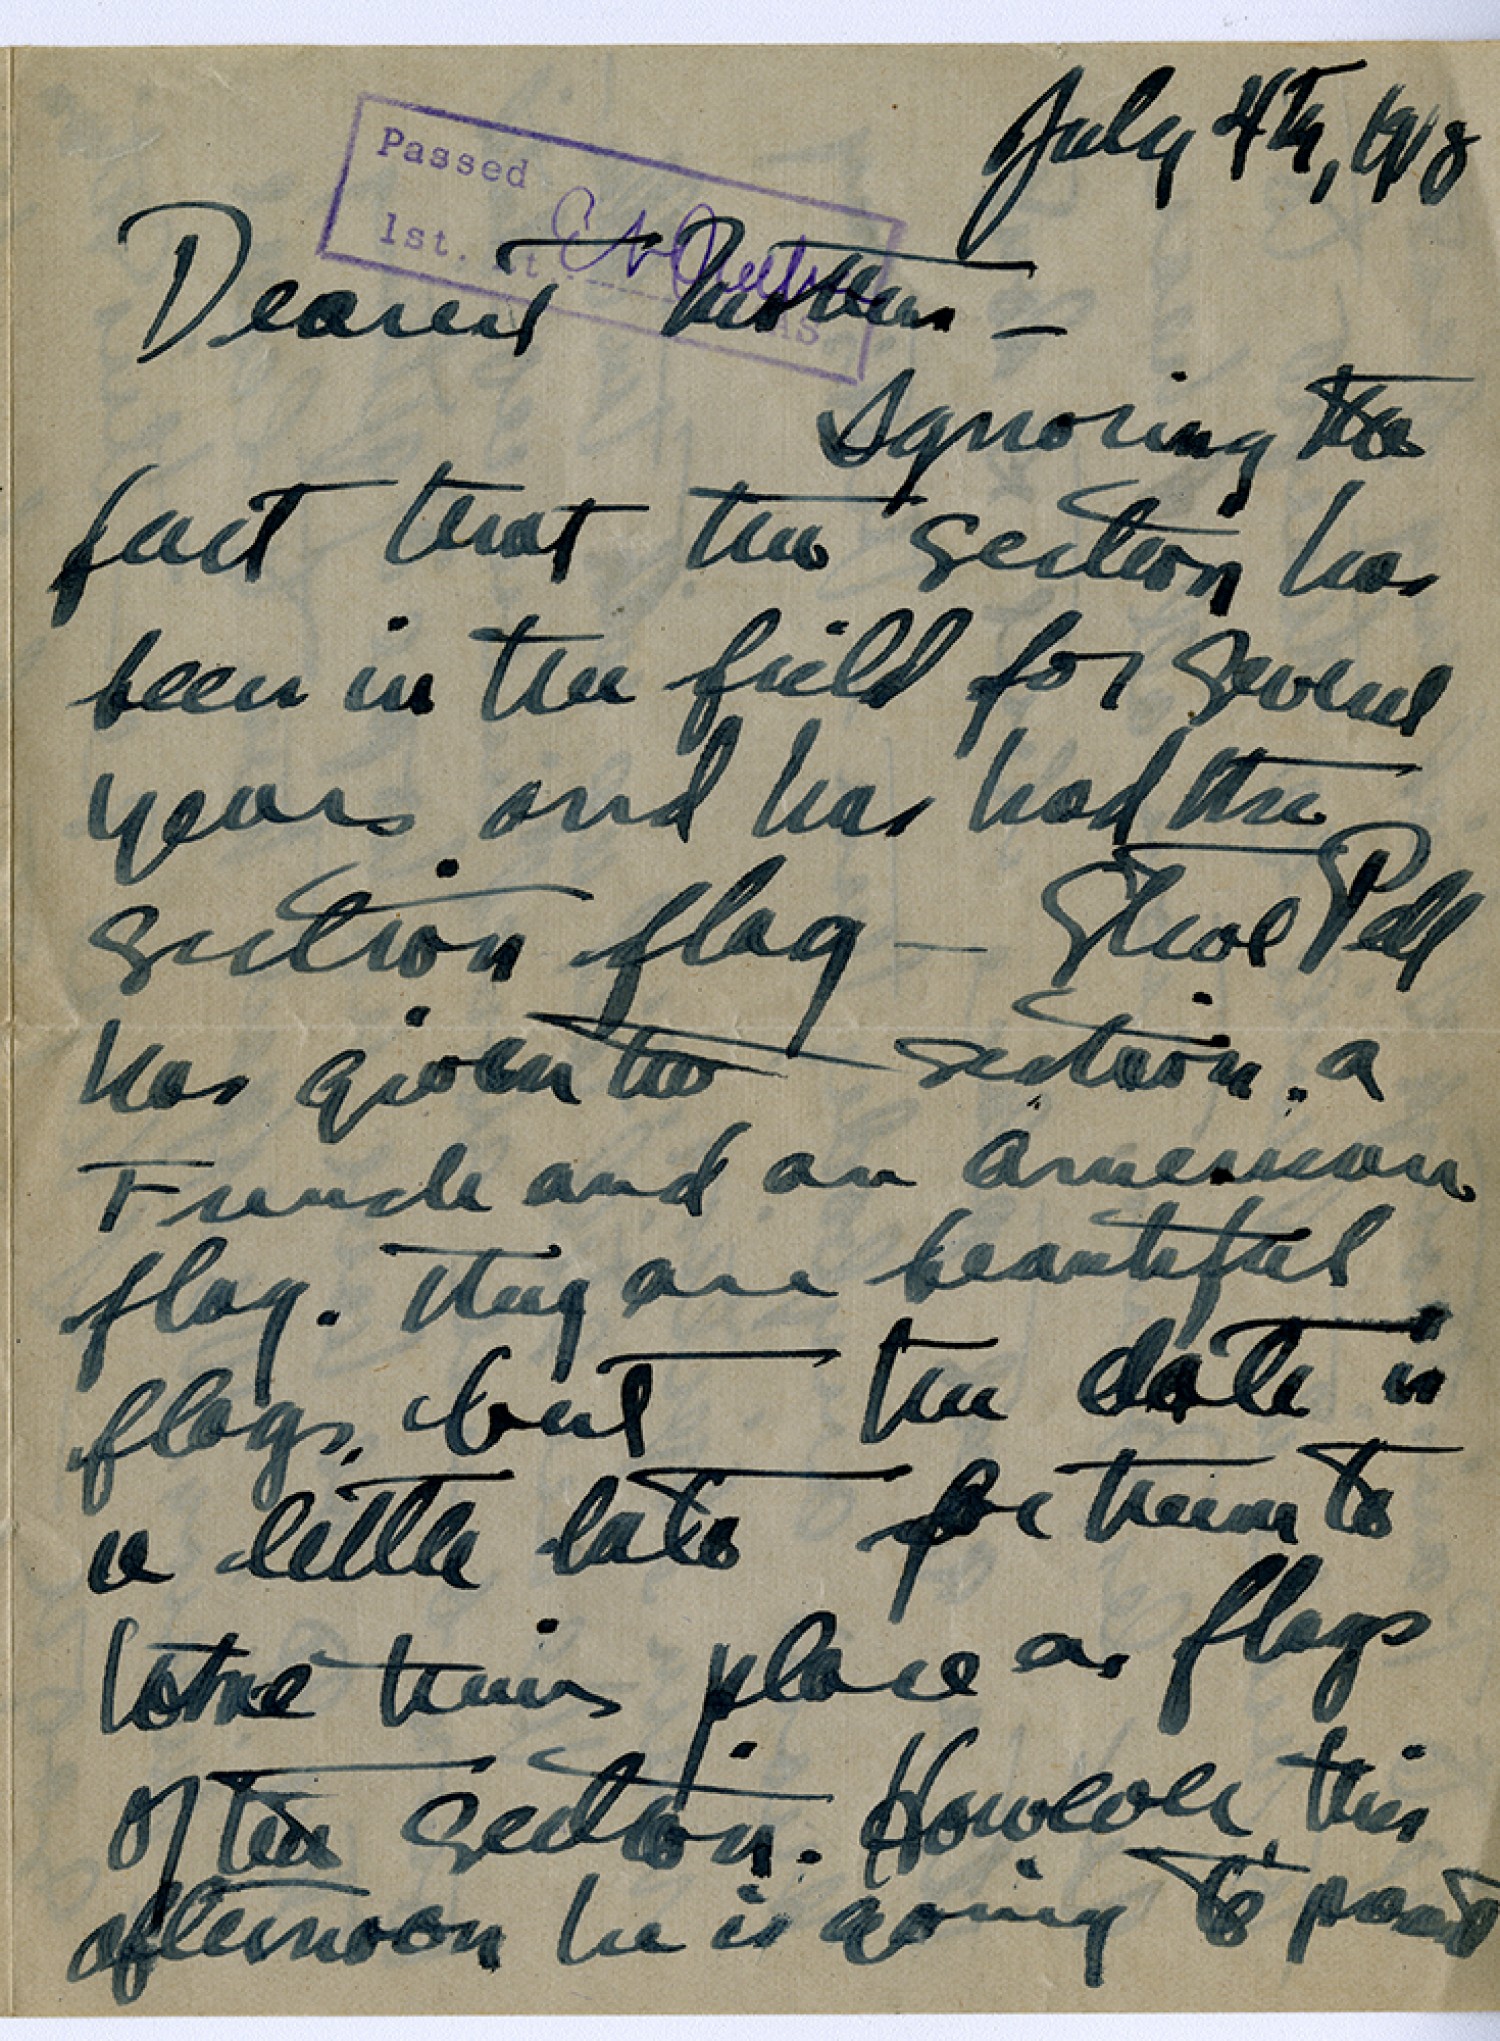 July 4th, 1918
Passed
1st. Lt.
AS
Dearest Mother –
Ignoring the
fact that the section has
been in the field for several
years and has had the
section flag – Steve Pell
has given the section, a
French and an American
flag. They are beautiful
flags, but the date is
a little late for them to
take their place as flags
of the section. However, this
afternoon he is going to